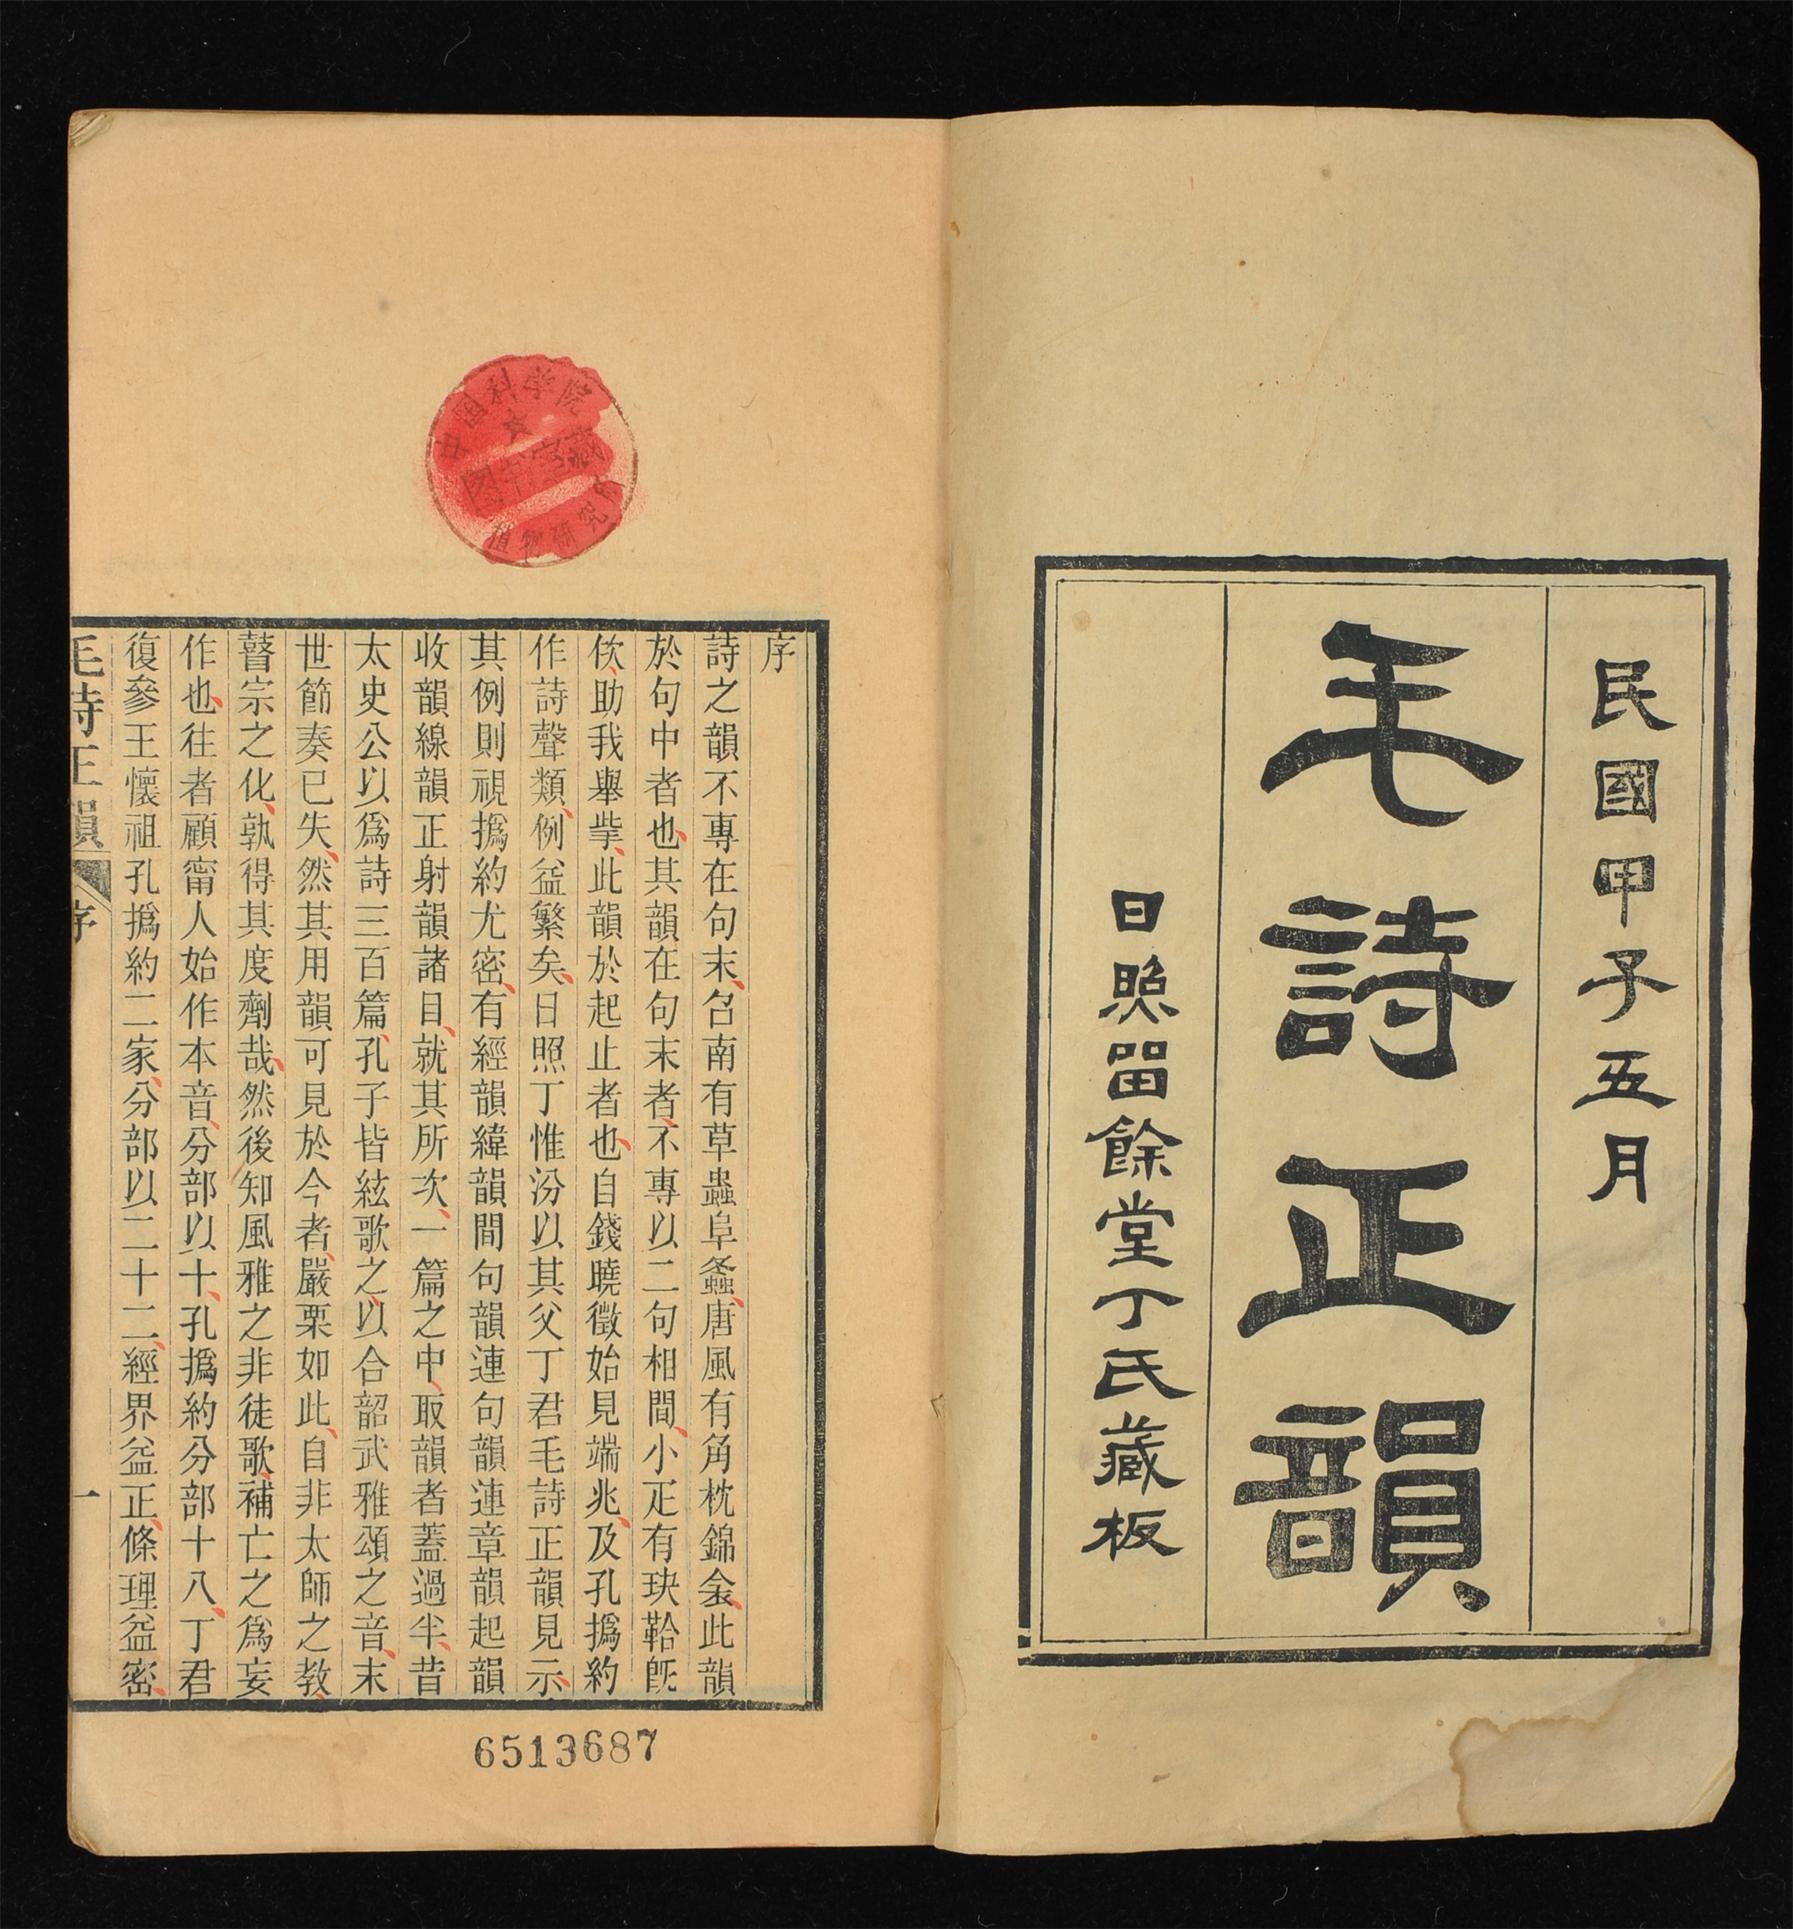 民國甲子五月
毛詩正韻
日照畱餘堂丁氏藏板
中國科学院
植物研究所
序
詩之韻不專在句末、召南有草蟲阜螽、唐風有角枕錦衾、此韻
於句中者也、其韻在句末者、不專以二句相間、小疋有玦鞈旣
佽、助我舉掌、此韻於起止者也、自錢曉徵始見端兆、及孔撝約
作詩聲類、例益繁矣、日照丁惟汾以其父丁君毛詩正韻見示、
其例則視撝約尤密、有經韻緯韻間句韻連句韻連章韻起韻
收韻線韻正射韻諸目、就其所次、一篇之中、取韻者蓋過半、昔
太史公以爲詩三百篇、孔子皆絃歌之、以合韶武雅頌之音、末
世節奏已失、然其用韻可見於今者、嚴栗如此、自非太師之教、
瞽宗之化、孰得其度劑哉、然後知風雅之非徒歌、補亡之爲妄
作也、往者顧甯人始作本音、分部以十、孔撝約分部十八、丁君
復參王懷祖孔撝約二家、分部以二十二、經界益正、條理益密、
毛詩正韻 序 一
6513687